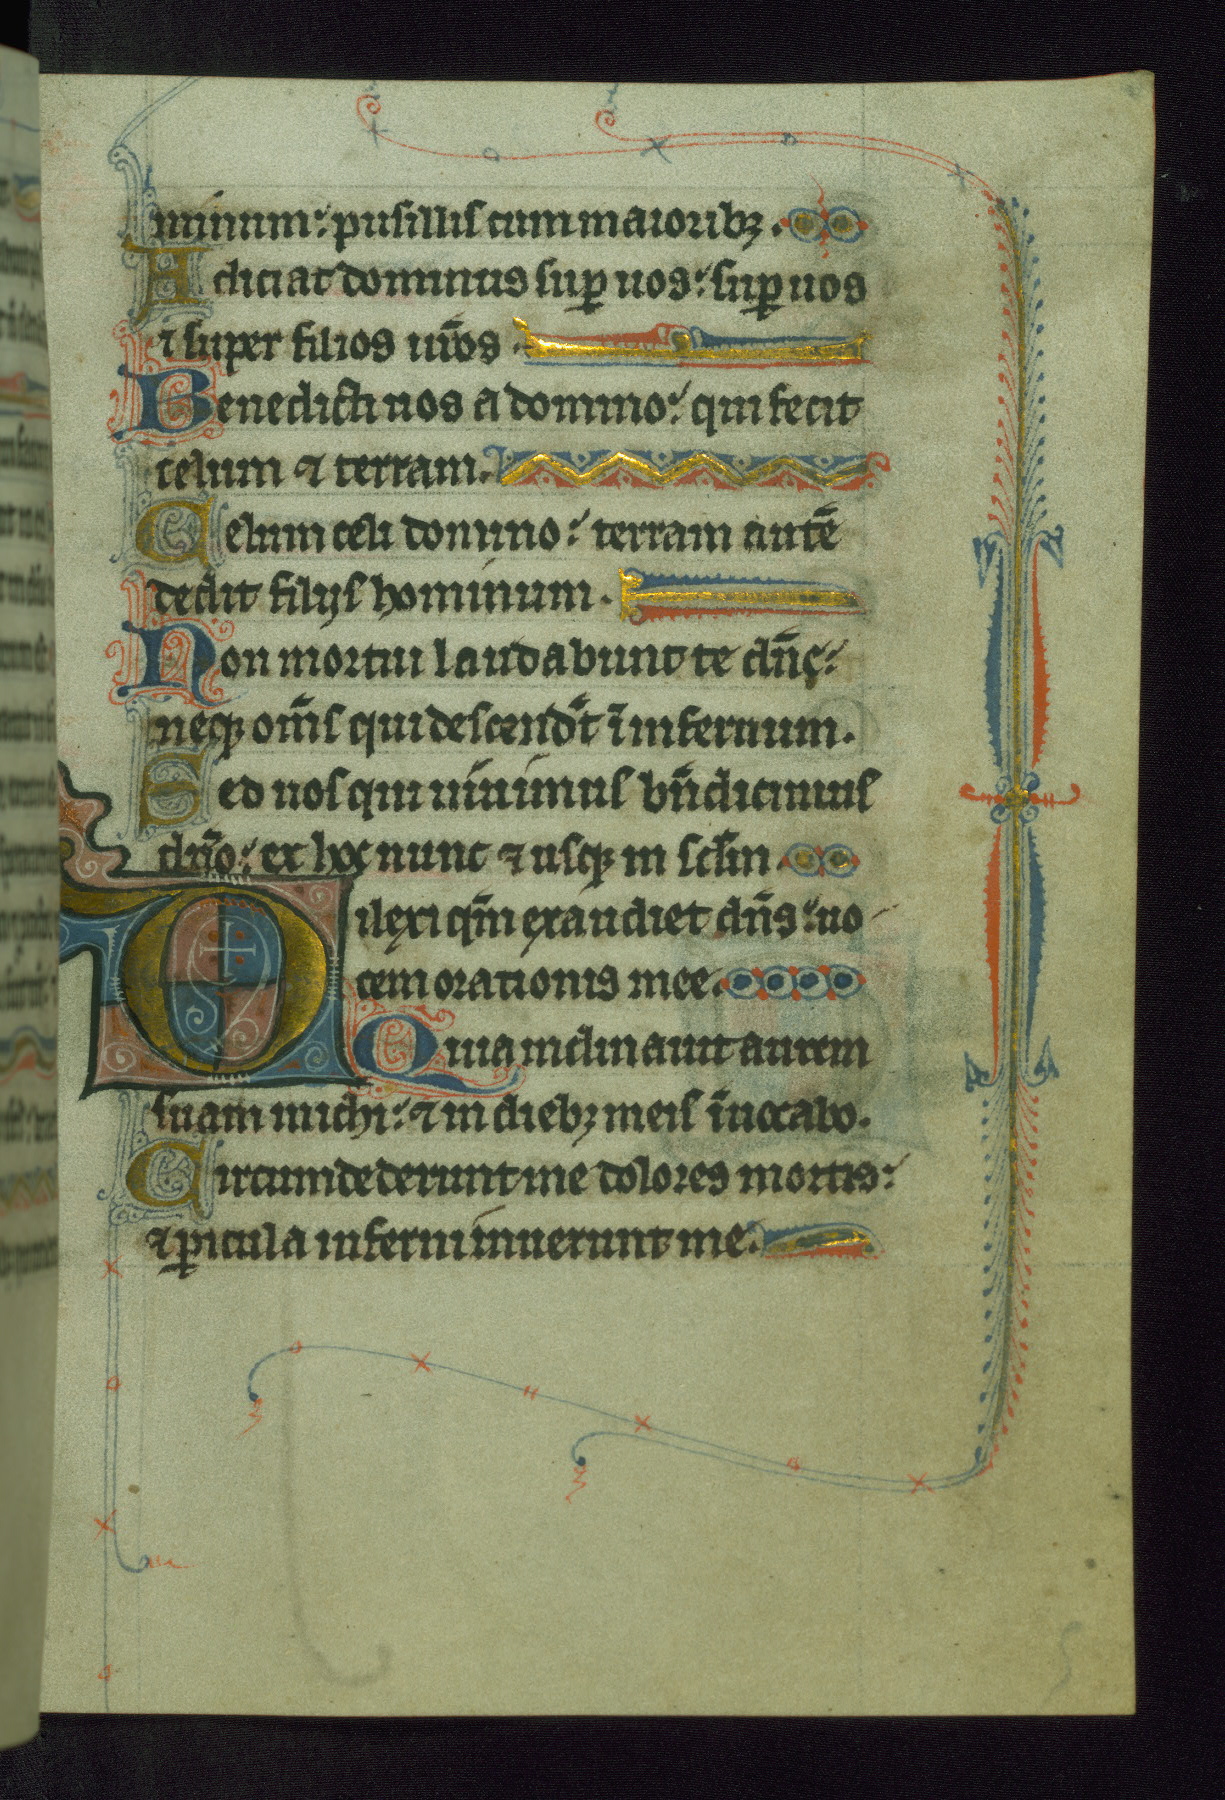 minum: pusillis cum maioribꝫ.
Adiciat dominus suꝑ uos: suꝑ uos
⁊ super filios ur̄os.
Benedicti uos a domino: qui fecit
celum ⁊ terram.
Celum celi domino: terram autē
dedit filijs hominum.
Non mortui laudabunt te dn̄e:
neqꝫ om̄s qui descendōt ī infernum.
Sed nos qui uiuimus bn̄dicimus
dn̄o: ex hoc nunc ⁊ usqꝫ in sclm̄.
Dilexi qm̄ exaudiet dn̄s: uo
cem orationis mee.
Quia inclinauit aurem
suam michi: ⁊ in diebꝫ meis īuocabo.
Circumdederunt me dolores mortis:
⁊ ꝑicula inferni inuenerunt me.